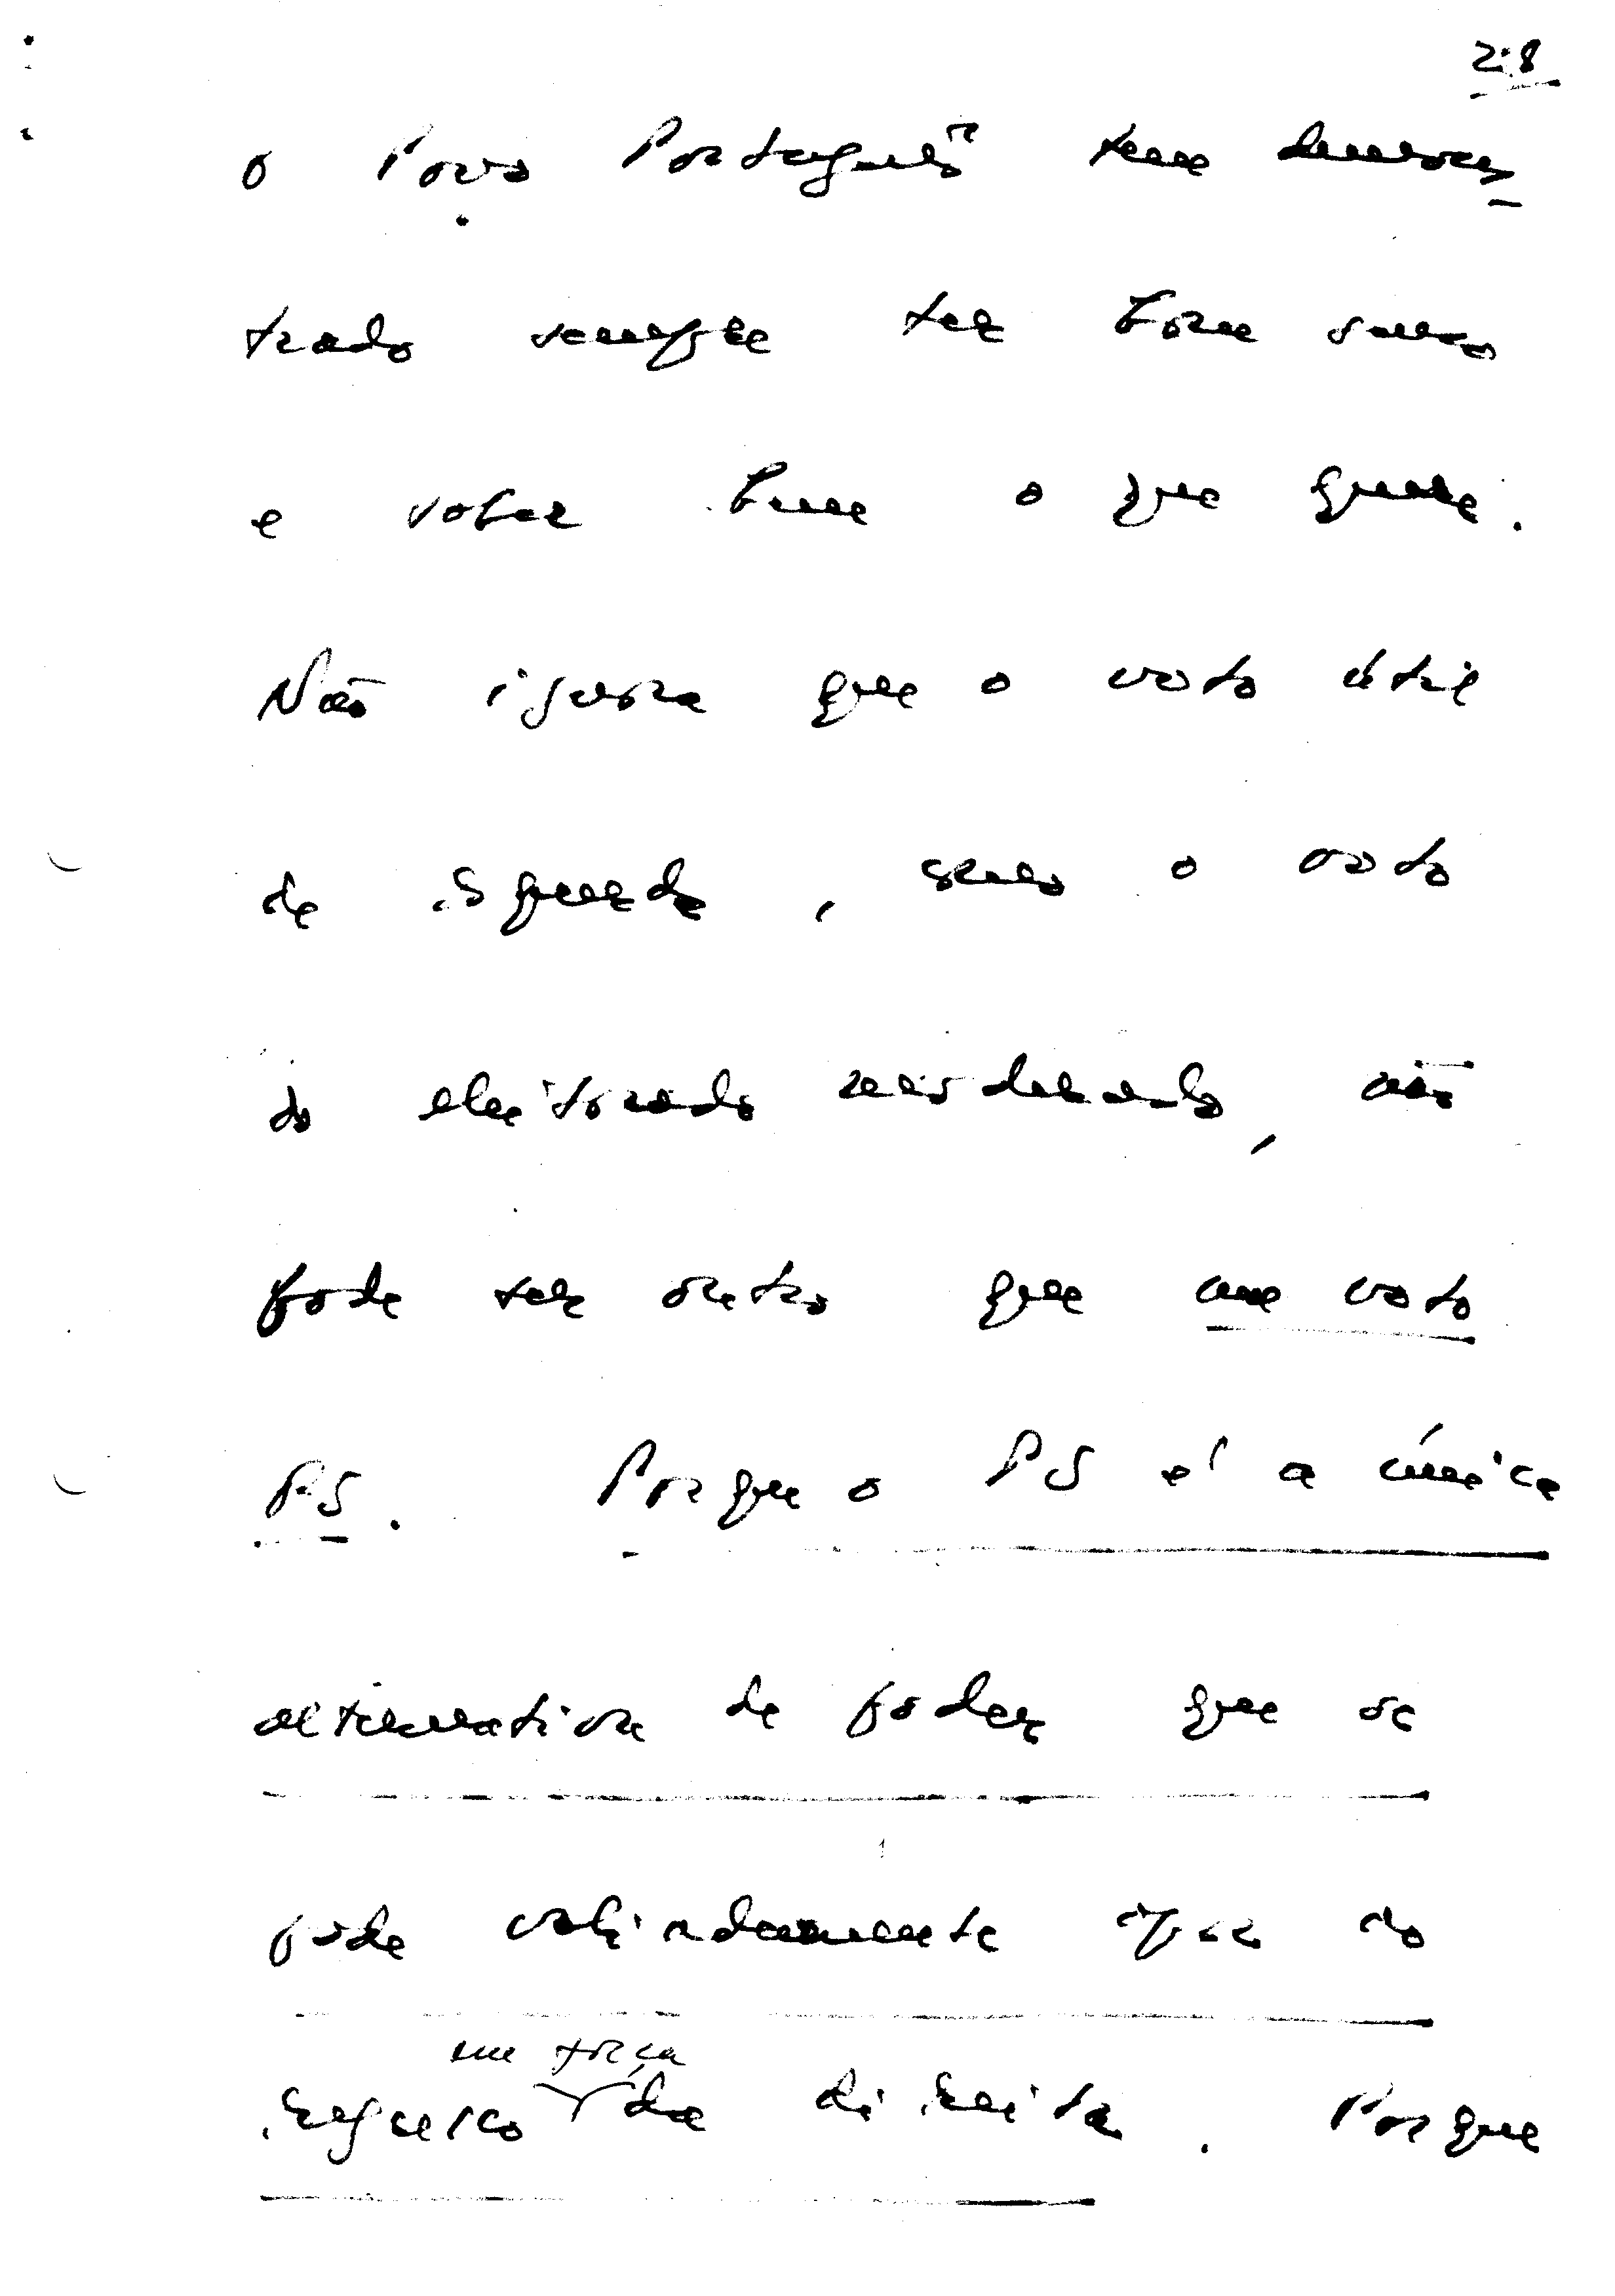 28
o Povo Português tem demons-
trado sempre ter bom senso
e saber bem o que quere.
Não ignora que o voto útil
de esquerda, senão o voto
do eleitorado moderado, não
pode ter outro que um voto
PS. Porque o PS é a única
alternativa de poder que se
pode validamente opor ao
em força
regresso da direita. Porque